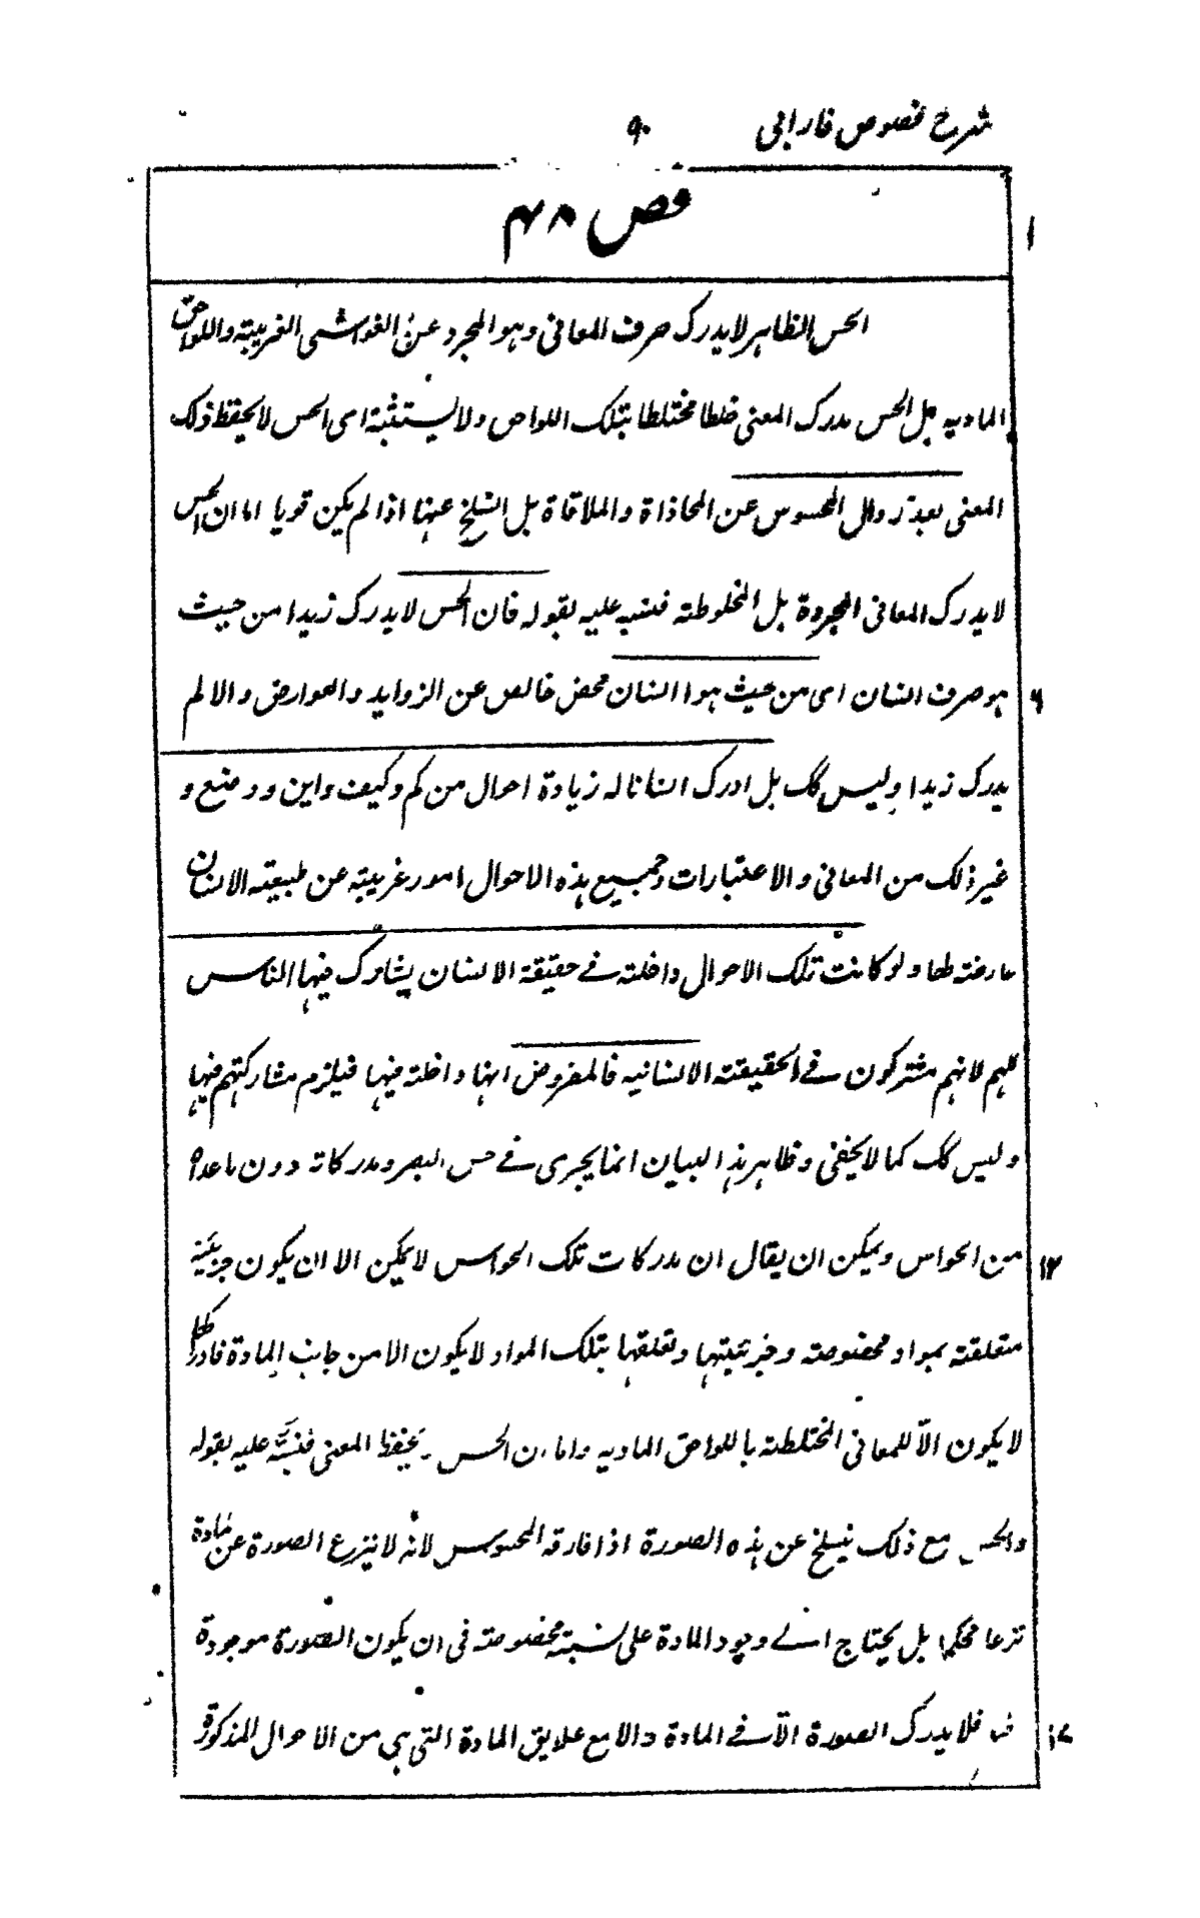 شرح فصوص فارابی
۹۰
فص ۴۸
۱
الحس الظاهر لا یدرک صرف المعانی وهو المجرد عن الغواشی الغریبة واللواحق
المادیه بل الحس یدرک المعنی خلطا مختلطا بتلک اللواحق ولا یستثبته ای الحس لا یحفظ ذلک
المعنی بعد زوال المحسوس عن المحاذاة والملاقاة بل انسلخ عنها اذا لم یکن قویا اما ان الحس
لا یدرک المعانی المجردة بل المخلوطة فنبه علیه بقوله فان الحس لا یدرک زیدا من حیث
هو صرف انسان ای من حیث هو انسان محض خالص عن الزواید والعوارض والا لم ۶
یدرک زیدا ولیس کک بل ادرک انسانا له زیادة احوال من کم وکیف واین ووضع و
غیر ذلک من المعانی والاعتبارات وجمیع هذه الاحوال امور غریبة عن طبیعة الانسان
عارضة لها ولو کانت تلک الاحوال داخلة فی حقیقة الانسان یشارک فیها الناس
کلهم لانهم مشترکون فی الحقیقة الانسانیه فالمفروض انها داخلة فیها فیلزم مشارکتهم فیها
ولیس کک کما لا یخفی وظاهر هذا البیان انما یجری فی حس البصر ومدرکاته دون ما عداه
من الحواس ویمکن ان یقال ان مدرکات تلک الحواس لا یمکن الا ان یکون جزئیة ۱۲
متعلقة بمواد مخصوصة وجزئیتها وتعلقها بتلک المواد لا یکون الا من جانب المادة فادراکها
لا یکون الّا للمعانی المختلطة باللواحق المادیه واما ان الحس یحفظ المعنی فنبَّه علیه بقوله
والحس مع ذلک ینسلخ عن هذه الصورة اذا فارقه المحسوس لانه لا ینزع الصورة عن مادة
نزعا محکما بل یحتاج الی وجود المادة علی نسبة مخصوصة فی ان یکون الصورة موجودة
فلا یدرک الصورة الّا فی المادة والا مع علایق المادة التی هی من الاحوال المذکورة ۱۷